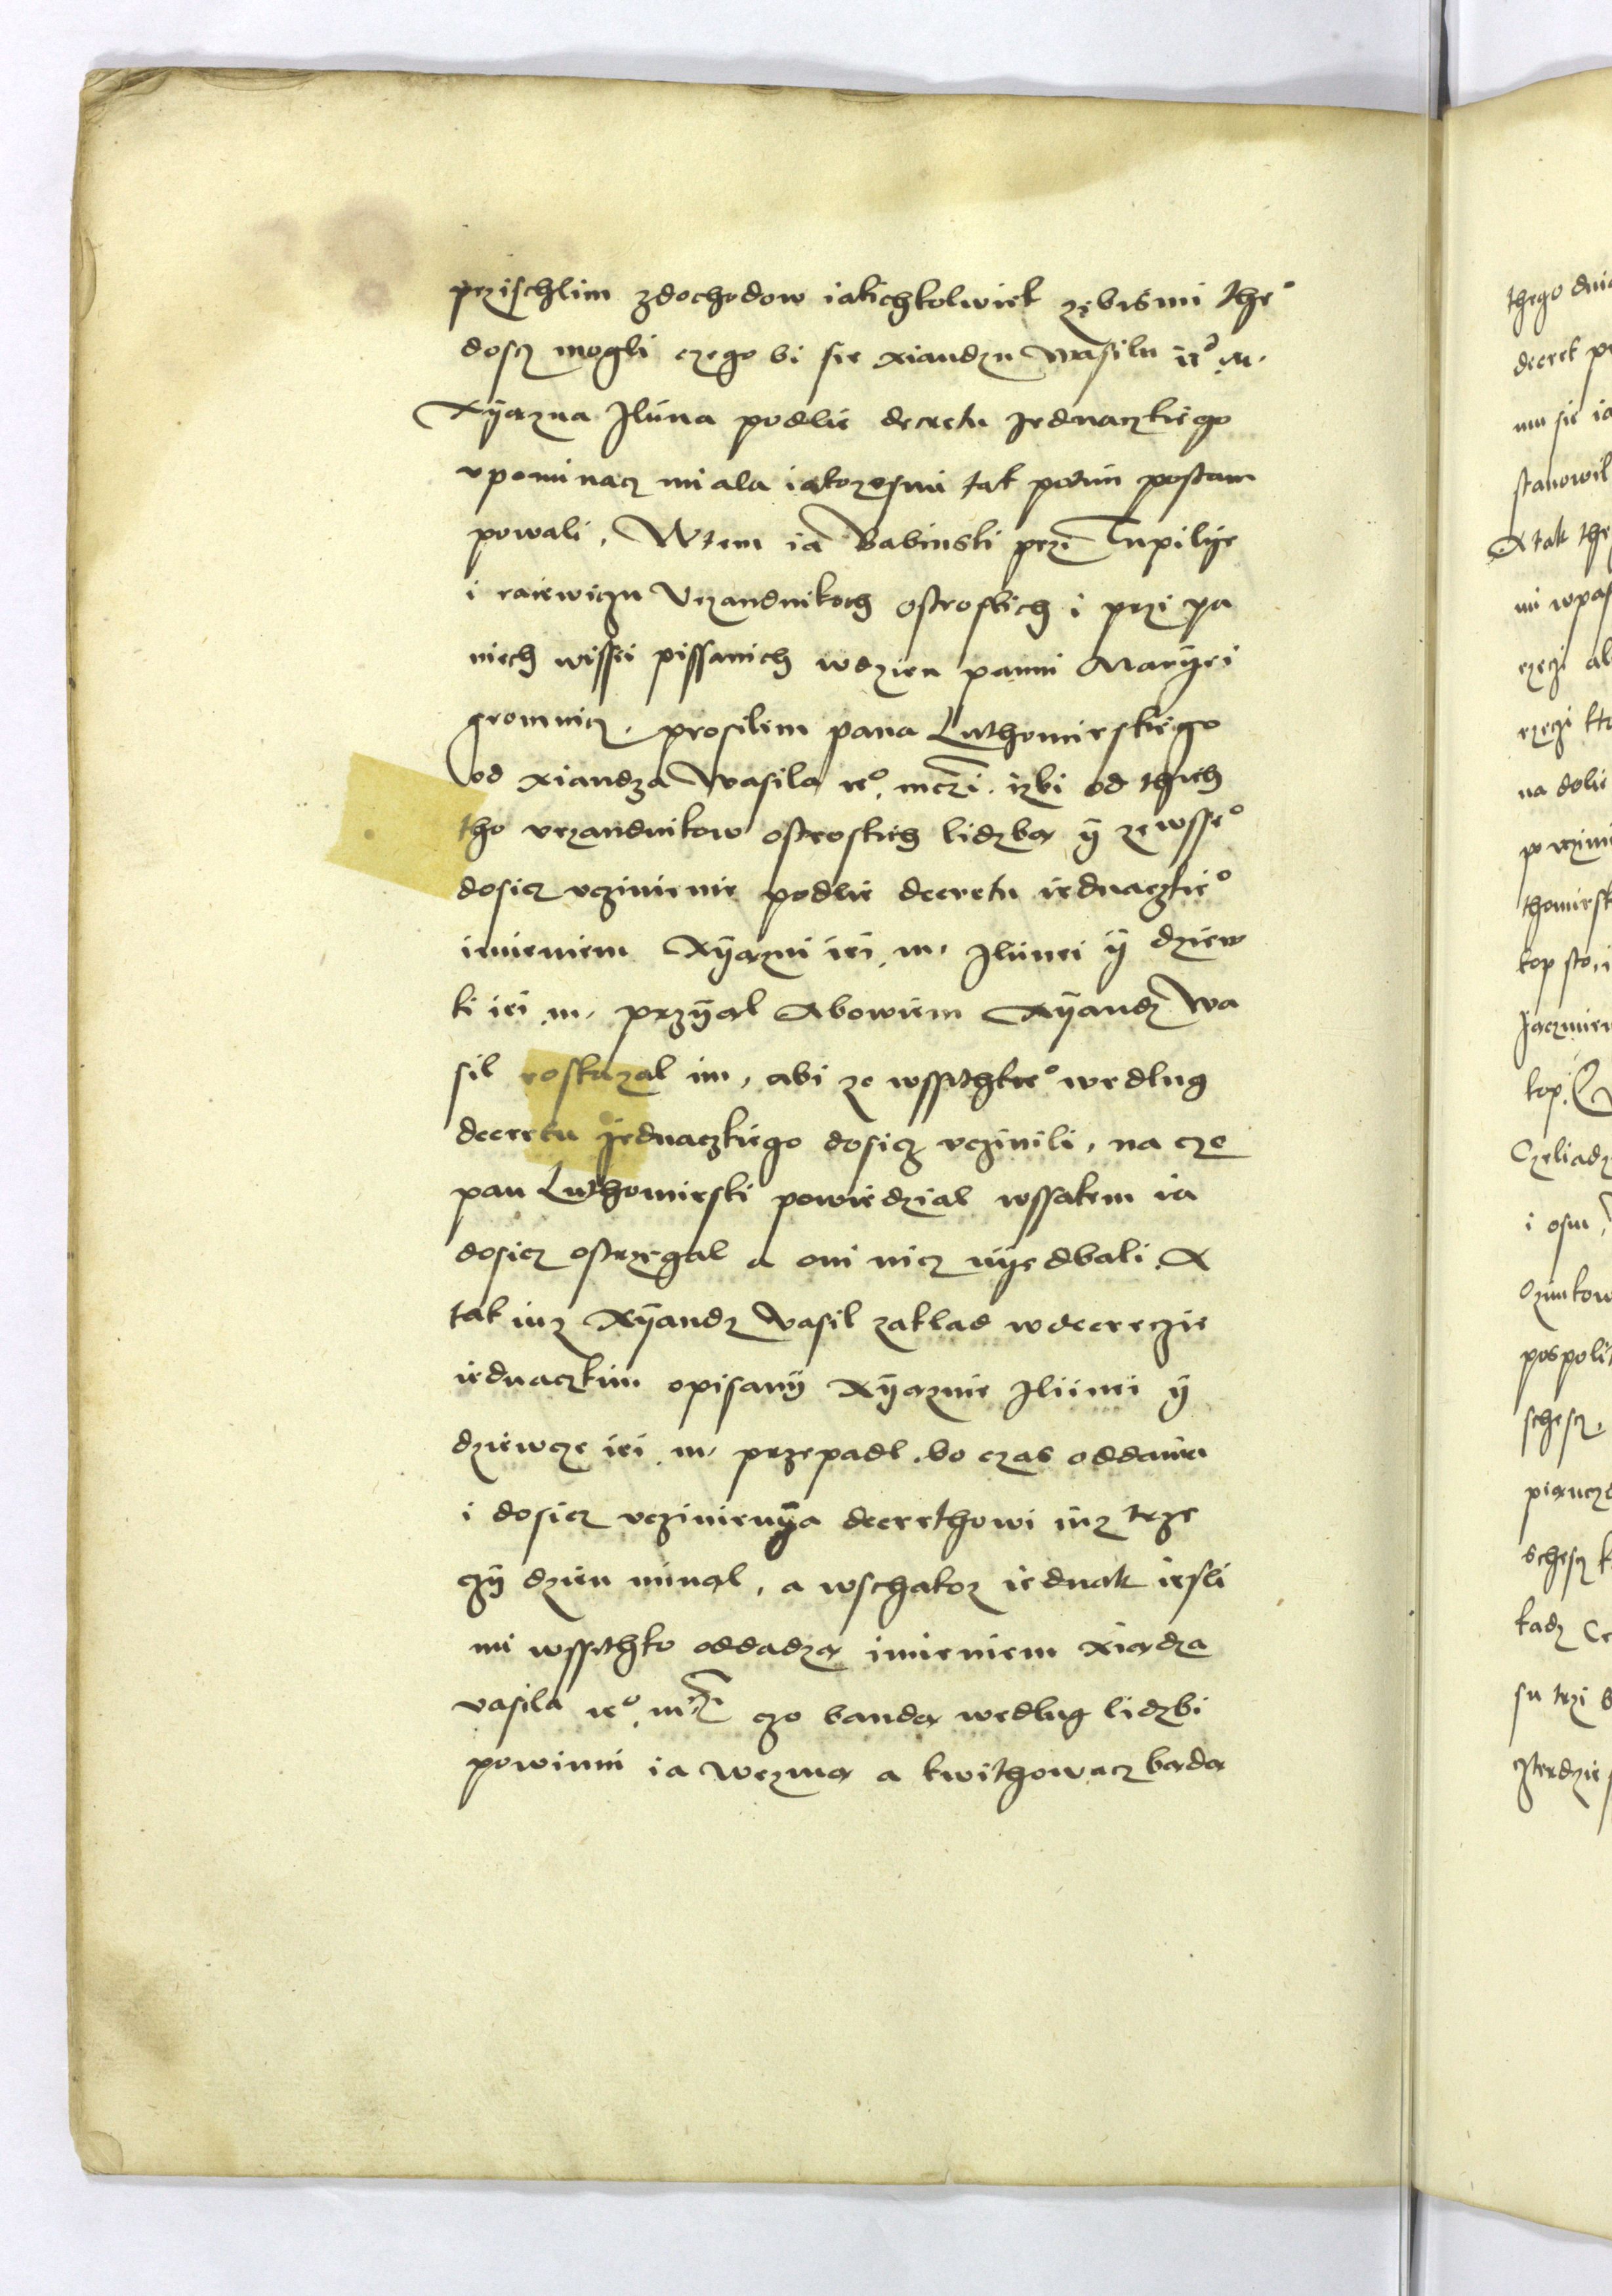 przischlim zdochodow iakichkolwiek zebismi the°
doscz mogli czego bi sie xiandzu Wasilu ie° m.
Xÿazna Iluna podlie decretu Jednaczkiego
vpominacz miala iakozesmi tak potim postam
powali, Wtem ia Babinski przi Tupilije
i raiewiczu Vrzandnikoch ostroskich i przi pa
niech wissei pissanich wdzien panni Maryei
gromnicz, prosilim pana Luthomirskiego
od xiandza Wasila ie° mczi izbi od thich
tho vrzandnikow ostroskich lidzba ÿ ze wsse°
dosicz vczinienie podlie decretu iednaczkie°
imieniem Xÿazni iei m. Ilinei ÿ dziew
ki iei m. przÿal Abowiem Xÿandz Wa
sil roskazal im, abi ze wssithkie° wedlug
decretu Jednaczkiego dosicz vczinili, na cze
pan Luthomirski powiedzial wssakem ia
dosicz ostrzegal a oni nicz nÿe dbali. A
tak iuz Xÿandz Vasil zaklad wdecreczie
iednaczkim opisanÿ Xÿaznie Ilinei ÿ
dziewcze iei m. przepadl, bo czas oddania
i dosicz vczinienÿa decrethowi iuz trze
czÿ dzien minal, a wschakoz iednak iesli
mi wssithko oddadza imieniem xiadza
vasila ie° mczi czo banda wedlug lidzbi
powinni ia wezma a kwithowacz bada
thego dnia
decret
mu sie
stanowil
A tak the
mi
rzeczi
rzeczi
na dolie
thomirsk
kop sto
kop
Czeliadz
i osm
pospolit
schescz
schescz
su trzi